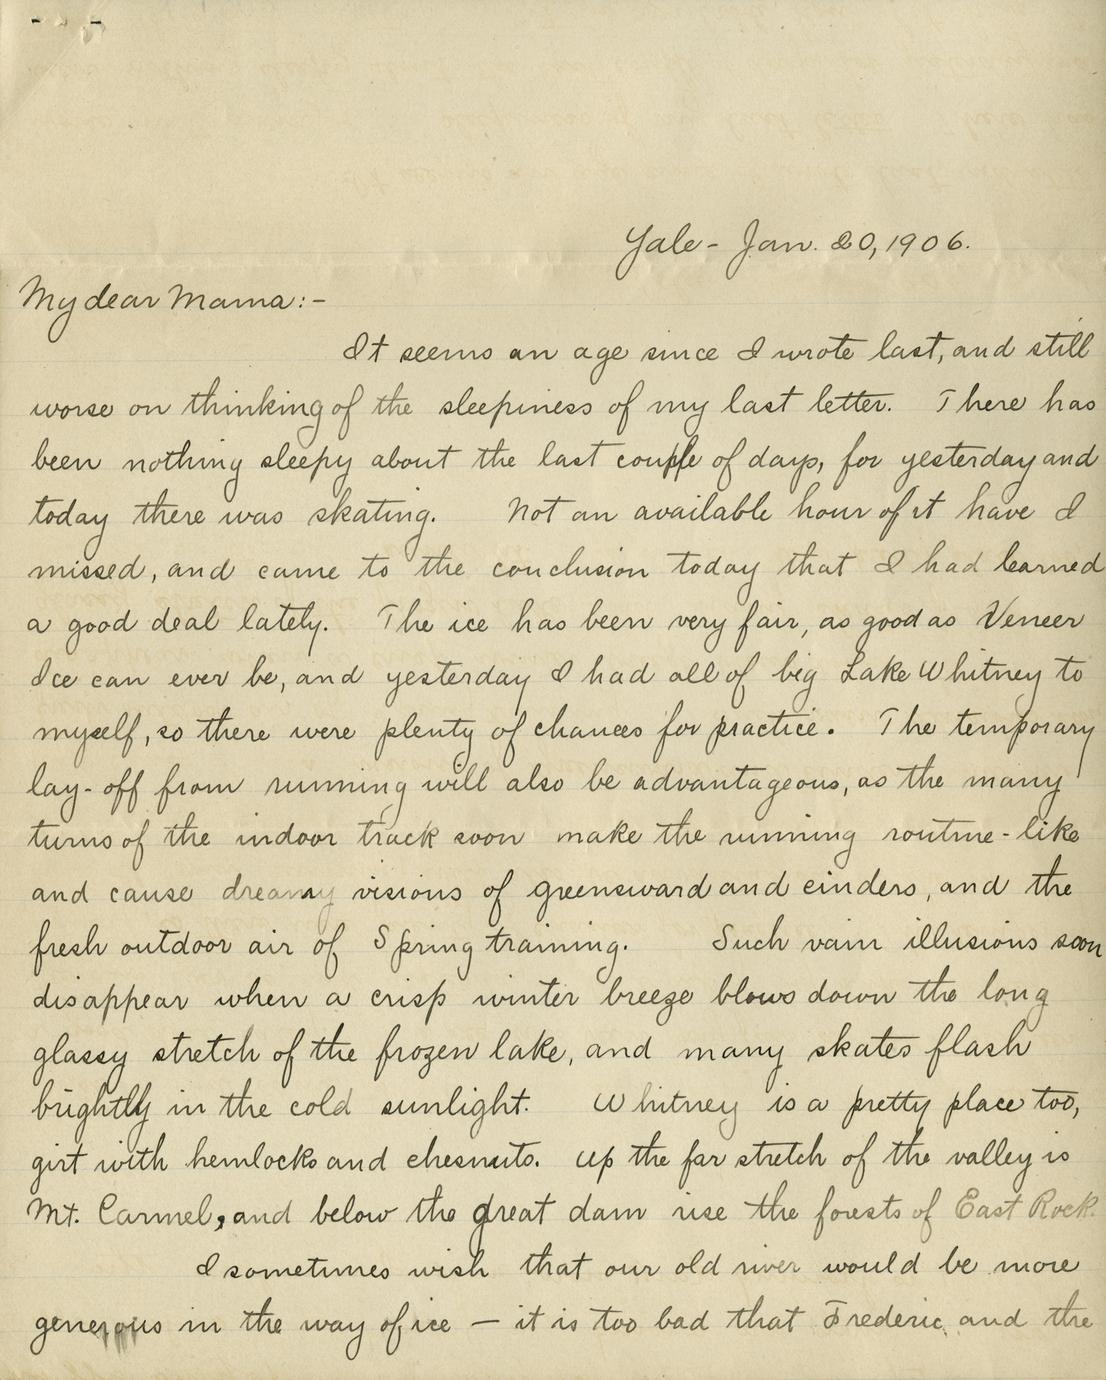 Yale - Jan. 20, 1906.
My dear Mama:-
It seems an age since I wrote last, and still
worse on thinking of the sleepiness of my last letter. There has
been nothing sleepy about the last couple of days, for yesterday and
today there was skating. Not an available hour of it have I
missed, and came to the conclusion today that I had learned
a good deal lately. The ice has been very fair, as good as Veneer
Ice can ever be, and yesterday I had all of big Lake Whitney to
myself, so there were plenty of chances for practice. The temporary
lay-off from running will also be advantageous, as the many
turns of the indoor track soon make the running routine-like
and cause dreamy visions of greensward and cinders, and the
fresh outdoor air of Spring training. Such vain illusions soon
disappear when a crisp winter breeze blows down the long
glassy stretch of the frozen lake, and many skates flash
brightly in the cold sunlight. Whitney is a pretty place too,
girt with hemlocks and chesnuts. Up the far stretch of the valley is
Mt. Carmel, and below the great dam rise the forests of East Rock.
I sometimes wish that our old river would be more
generous in the way of ice — it is too bad that Frederic and the